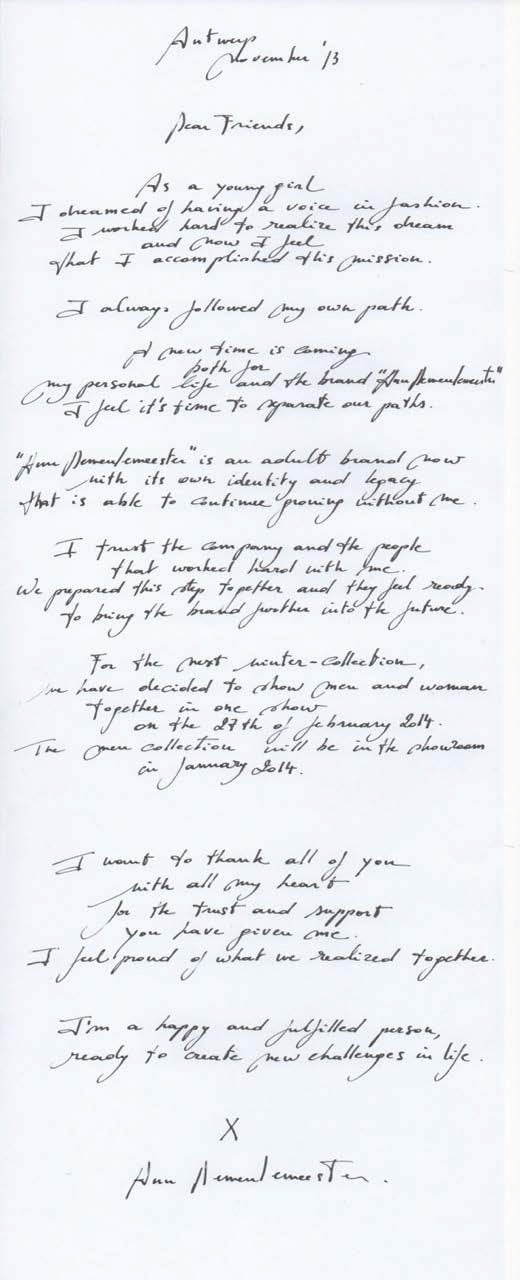 Antwerp
november '13
Dear Friends,
As a young girl
I dreamed of having a voice in fashion.
I worked hard to realize this dream
and now I feel
that I accomplished this mission.
I always followed my own path.
A new time is coming
both for
my personal life and the brand "Ann Demeulemeester"
I feel it's time to separate our paths.
"Ann Demeulemeester" is an adult brand now
with its own identity and legacy
that is able to continue growing without me.
I trust the company and the people
that worked hard with me.
We prepared this step together and they feel ready
to bring the brand further into the future.
For the next winter-collection,
we have decided to show men and woman
together in one show
on the 27th of february 2014.
The men collection will be in the showroom
in January 2014.
I want to thank all of you
with all my heart
for the trust and support
you have given me.
I feel proud of what we realized together.
I'm a happy and fulfilled person,
ready to create new challenges in life.
X
Ann Demeulemeester.